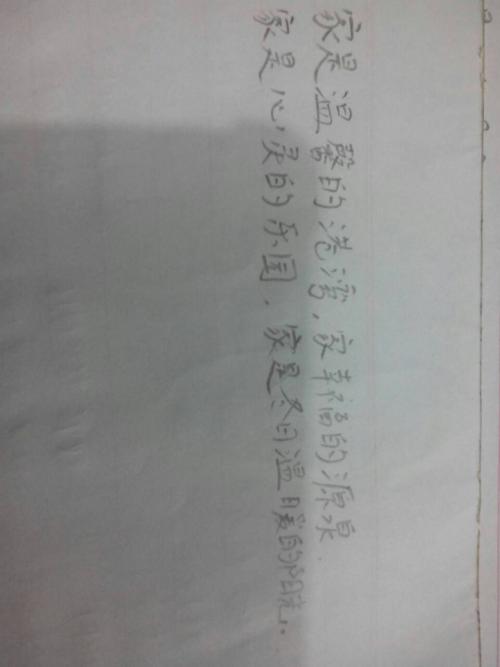 家是温馨的港湾，家幸福的源泉.
家是心灵的乐园，家是冬日温暖的阳光。